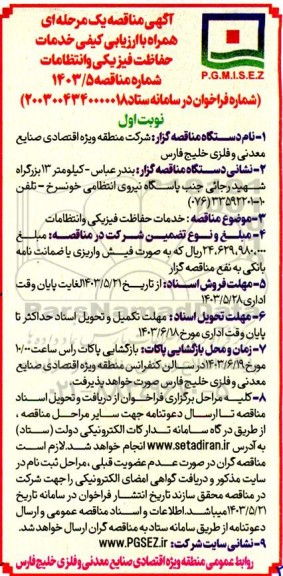 P.G.M.I.S.E.Z
آگهی مناقصه یک مرحله ای
همراه با ارزیابی کیفی خدمات
حفاظت فیزیکی وانتظامات
شماره مناقصه ۱۴۰۳/۵
(شماره فراخوان در سامانه ستاد ۲۰۰۳۰۰۴۳۴۰۰۰۰۰۱۸)
نوبت اول
۱-نام دستگاه مناقصه گزار: شرکت منطقه ویژه اقتصادی صنایع
معدنی و فلزی خلیج فارس
۲-نشانی دستگاه مناقصه گزار: بندر عباس - کیلومتر ۱۳ بزرگراه
شهید رجائی جنب پاسگاه نیروی انتظامی خونسرخ - تلفن
۱۰-۳۳۵۹۲۲۰۱(۰۷۶)
۳-موضوع مناقصه : خدمات حفاظت فیزیکی وانتظامات
۴- مبلغ و نوع تضمین شرکت در مناقصه: مبلغ
ریال که به صورت فیش واریزی یا ضمانت نامه
بانکی به نفع مناقصه گزار
۵- مهلت فروش اسناد: از تاریخ ۱۴۰۳/۵/۲۱ لغایت پایان وقت
اداری ۱۴۰۳/۵/۲۸
۶- مهلت تحویل اسناد : مهلت تکمیل و تحویل اسناد حداکثر تا
پایان وقت اداری مورخ ۱۴۰۳/۶/۱۸
۷- زمان و محل بازگشایی پاکات: بازگشایی پاکات راس ساعت ۱۰/۰۰
مورخ ۱۴۰۳/۶/۱۹ در سالن کنفرانس منطقه ویژه اقتصادی صنایع
معدنی و فلزی خلیج فارس صورت خواهد پذیرفت.
۸- کلیه مراحل برگزاری فراخوان از دریافت و تحویل اسناد
مناقصه تا ارسال دعوتنامه جهت سایر مراحل مناقصه ،
از طریق درگاه سامانه تدارکات الکترونیکی دولت (ستاد)
به آدرس www.setadiran.ir انجام خواهد شد. لازم است
مناقصه گران در صورت عدم عضویت قبلی ، مراحل ثبت نام در
سایت مذکور و دریافت گواهی امضای الکترونیکی را جهت شرکت
در مناقصه محقق سازند تاریخ انتشار فراخوان در سامانه تاریخ
۱۴۰۳/۵/۲۱ میباشد. اطلاعات و اسناد مناقصه عمومی و ارسال
دعوتنامه از طریق سامانه ستاد به مناقصه گران ارسال خواهد شد.
۹-نشانی سایت شرکت: www.PGSEZ.ir
روابط عمومی منطقه ویژه اقتصادی صنایع معدنی و فلزی خلیج فارس